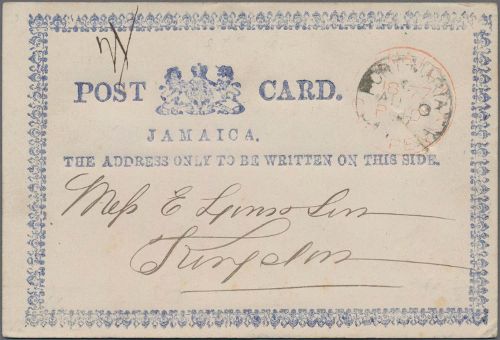 POST CARD.
JAMAICA.
THE ADDRESS ONLY TO BE WRITTEN ON THIS SIDE.
Mess E
Kingston